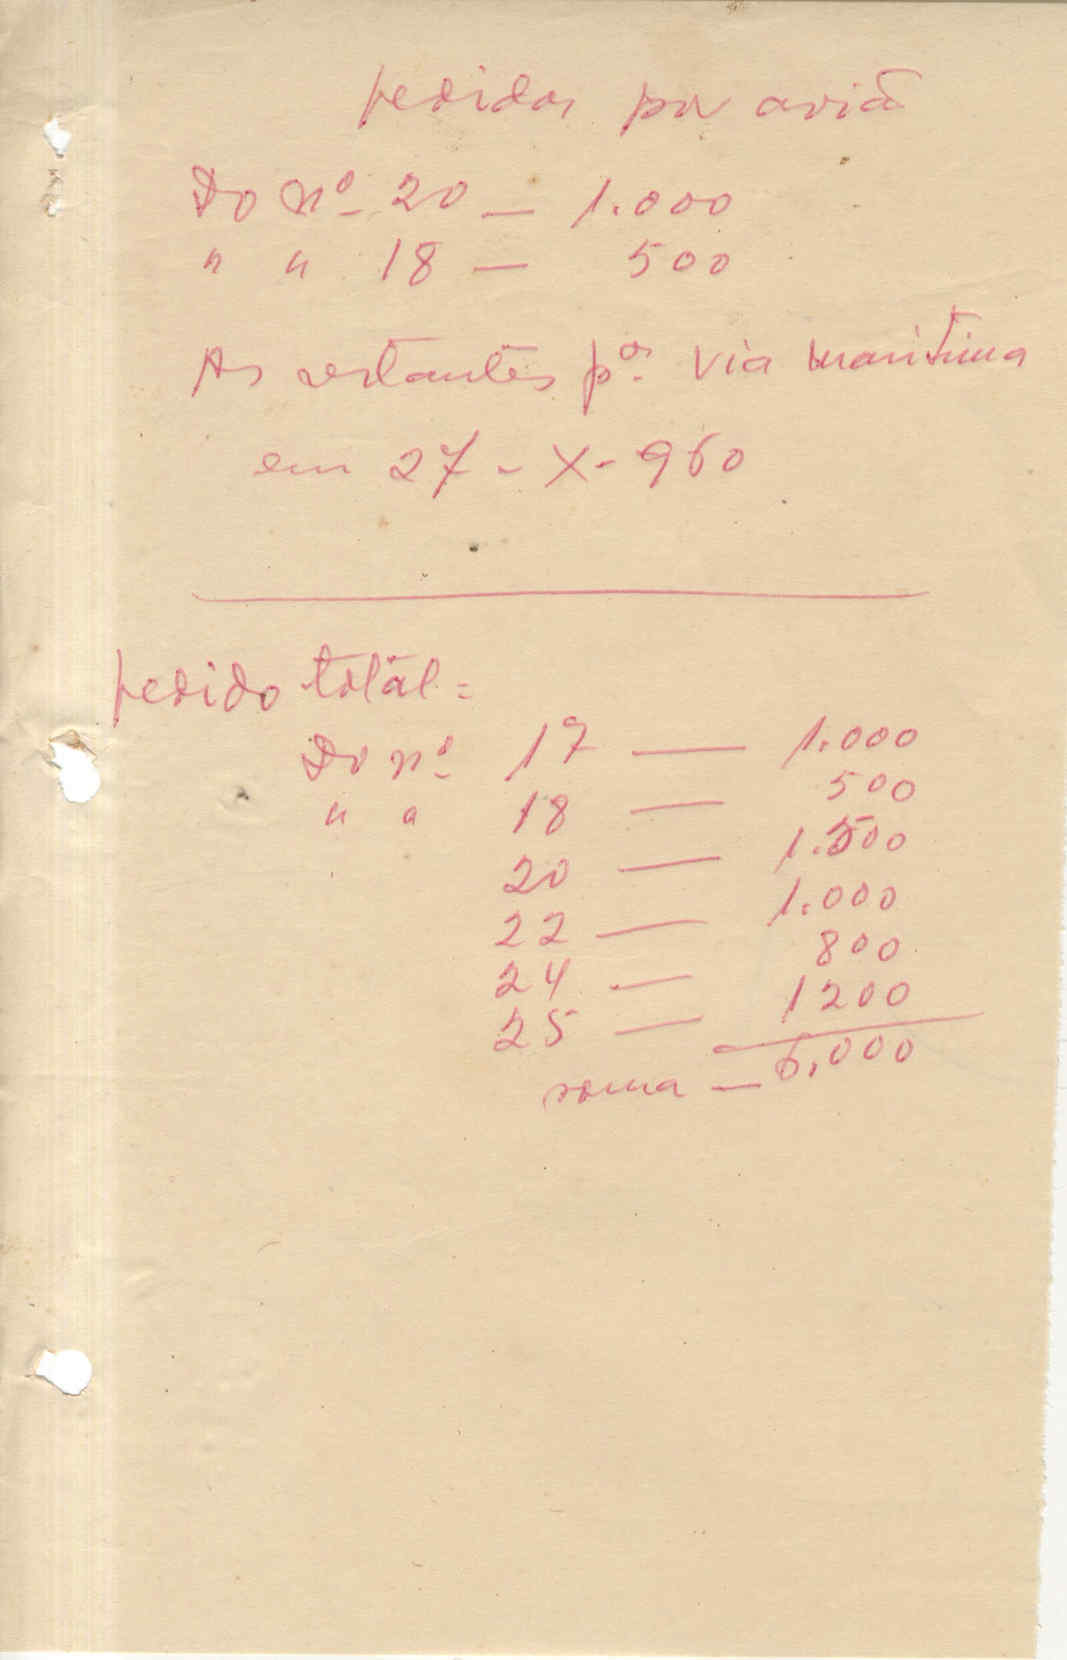 pedidos por aviã
Do nº 20 — 1.000
" " 18 — 500
As restantes pª via maritima
em 27 - X - 960
pedido total =
Do nº 17 — 1.000
" " 18 — 500
20 — 1.500
22 — 1.000
24 — 800
25 — 1200
soma — 6.000